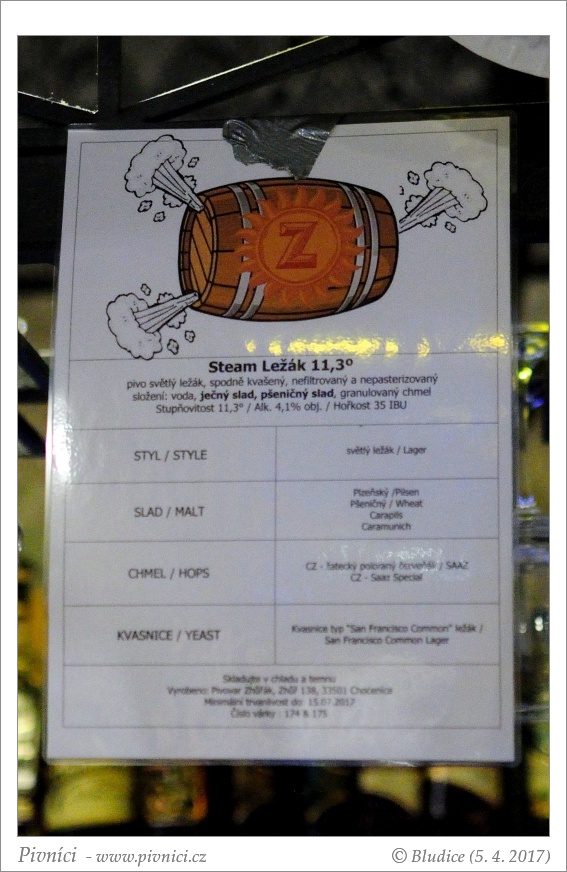 Z
Steam Ležák 11,3°
pivo světlý ležák, spodně kvašený, nefiltrovaný a nepasterizovaný
složení: voda, ječný slad, pšeničný slad, granulovaný chmel
Stupňovitost 11,3° / Alk. 4,1% obj. / Hořkost 35 IBU
STYL / STYLE
světlý ležák / Lager
SLAD / MALT
Plzeňský /Pilsen
Pšeničný / Wheat
Carapils
Caramunich
CHMEL / HOPS
CZ - žatecký poloraný červeňák / SAAZ
CZ - Saaz Special
KVASNICE / YEAST
Kvasnice typ "San Francisco Common" ležák /
San Francisco Common Lager
Skladujte v chladu a temnu
Vyrobeno: Pivovar Zhůřák, Zhůř 138, 33501 Chocenice
Minimální trvanlivost do: 15.07.2017
Číslo várky : 174 & 175
Pivníci - www.pivnici.cz
© Bludice (5. 4. 2017)